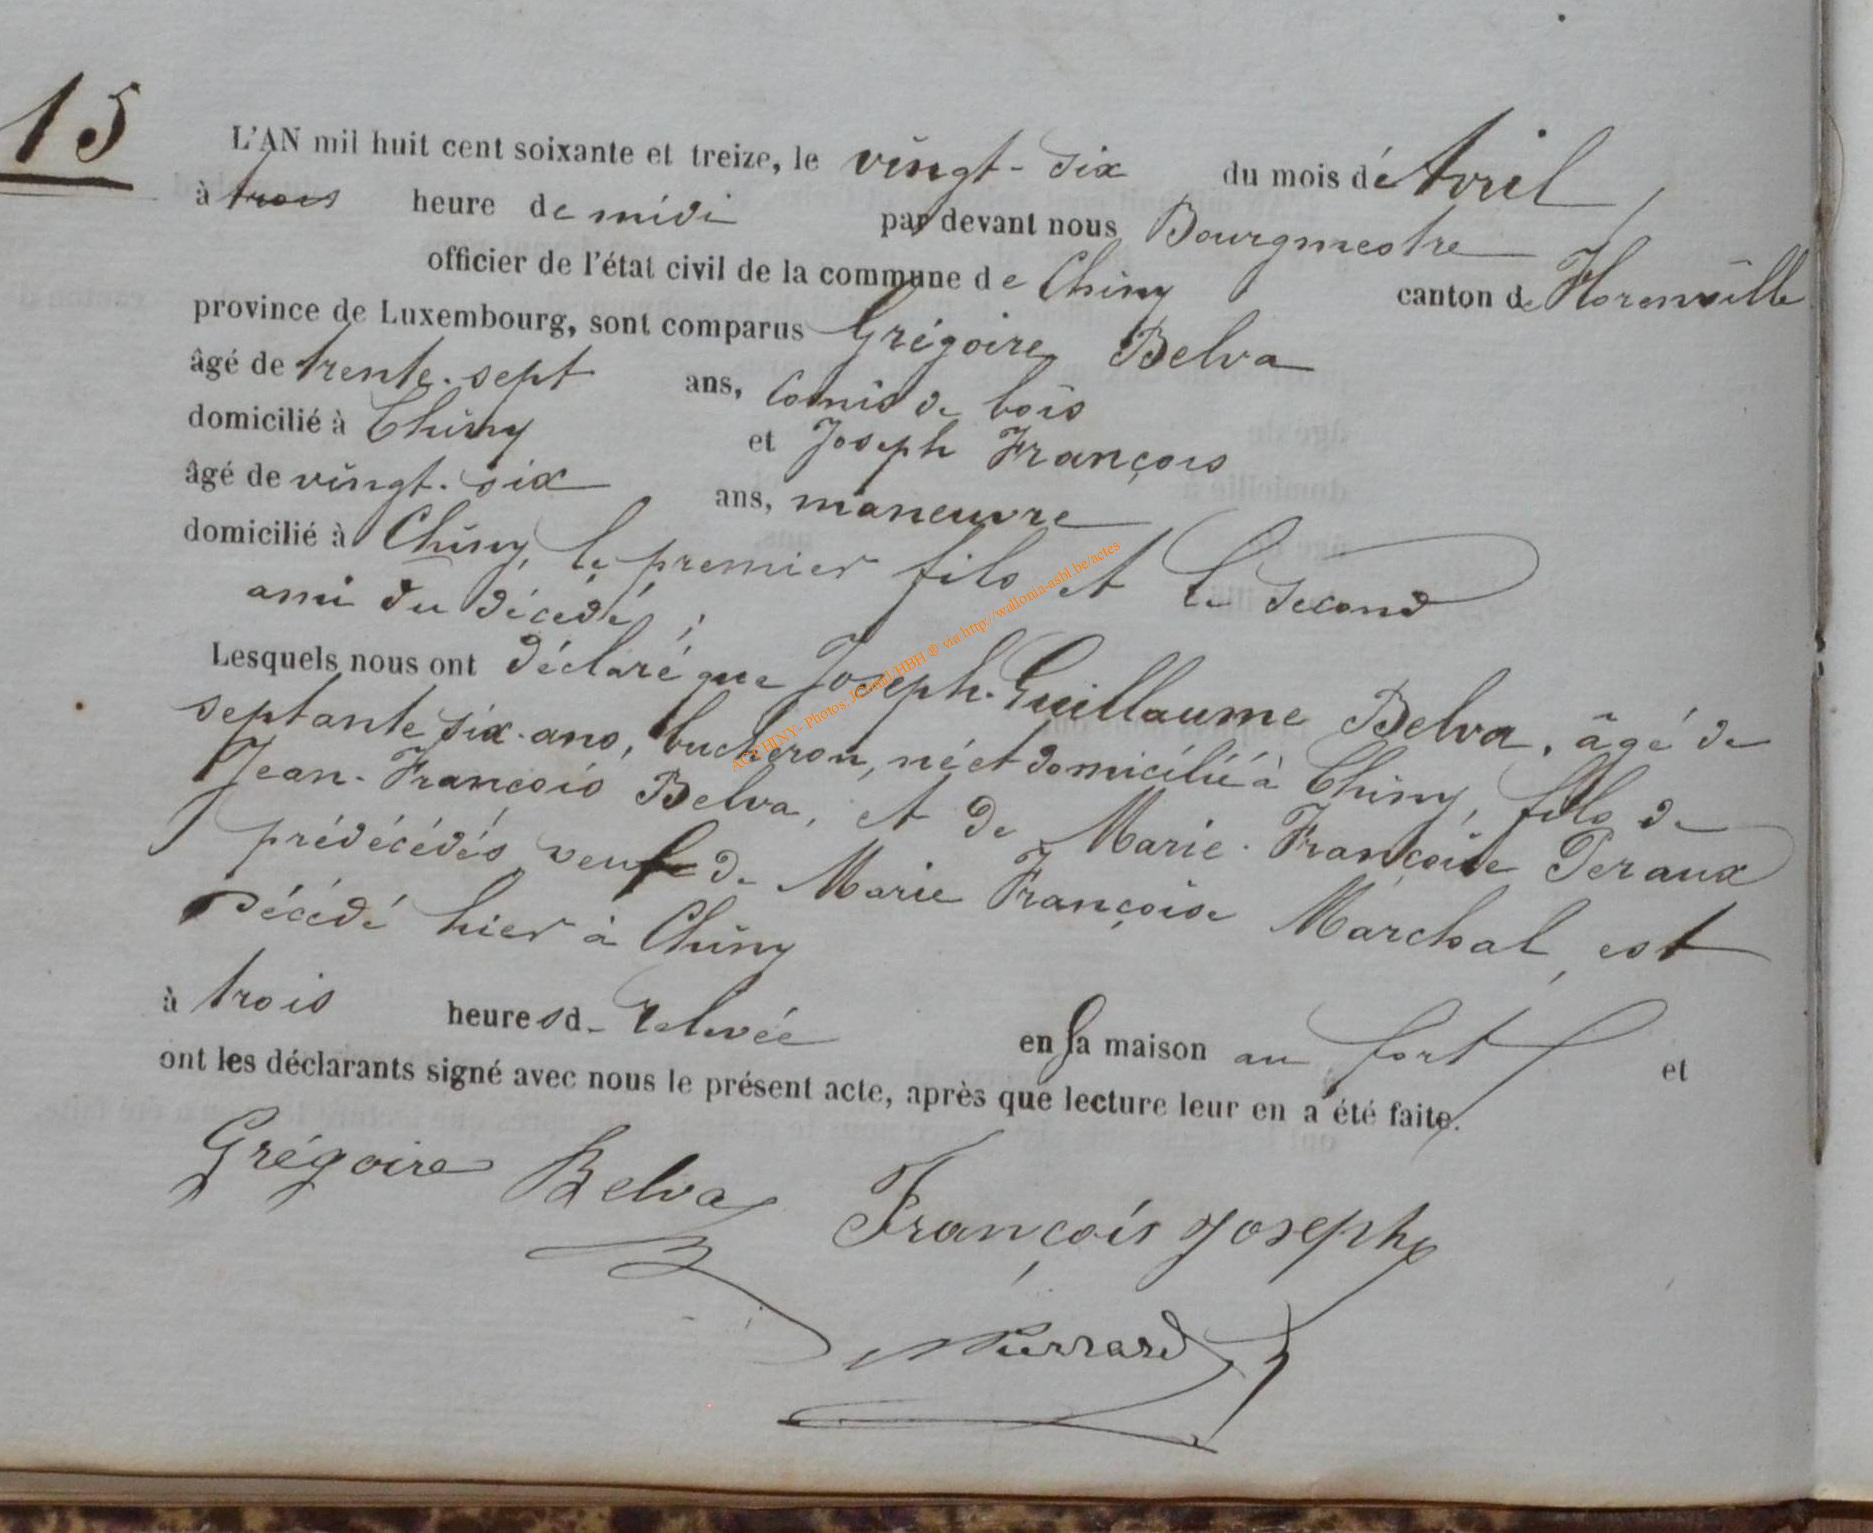 15
L'AN mil huit cent soixante et treize, le vingt-six du mois d'Avril
à trois heure de midi par devant nous Bourgmestre
officier de l'état civil de la commune de Chiny canton de Florenville
province de Luxembourg, sont comparus Grégoire Belva
âgé de trente-sept ans, Comis de bois
domicilié à Chiny et Joseph François
âgé de vingt-six ans, maneuvre
domicilié à Chiny, le premier fils et le second
ami du décédé ;
Lesquels nous ont déclaré que Joseph-Guillaume Belva, âgé de
septante six ans, bucheron, né et domicilié à Chiny, fils de
Jean-François Belva, et de Marie-Françoise Peraux
prédécédés veuf de Marie Françoise Marchal, est
décédé hier à Chiny
à trois heures de relevée en sa maison au fort et
ont les déclarants signé avec nous le présent acte, après que lecture leur en a été faite.
Grégoire Belva François Joseph
Pierrard
ACT CHINY - Photos JComil HBH ® via http://wallonia-asbl.be/actes